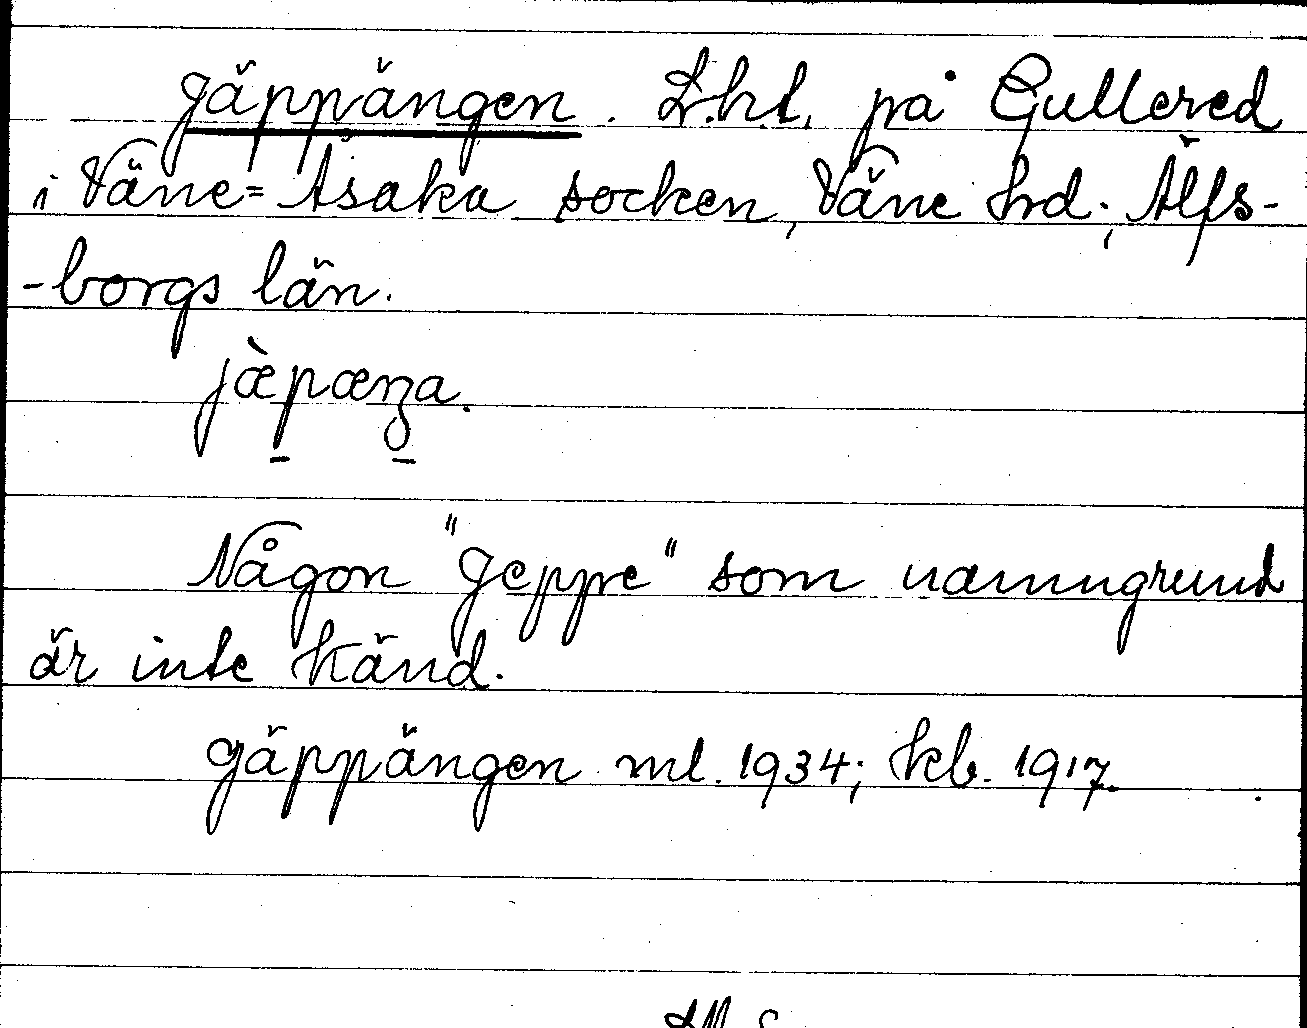 Gäppängen. L.h.t. på Gullered
i Väne=Åsaka socken, Väne hrd; Älfs-
-borgs län.
jæ̀pæŋa.
Någon "Geppe" som namngrund
är inte känd.
Gäppängen ml. 1934; kb. 1917.